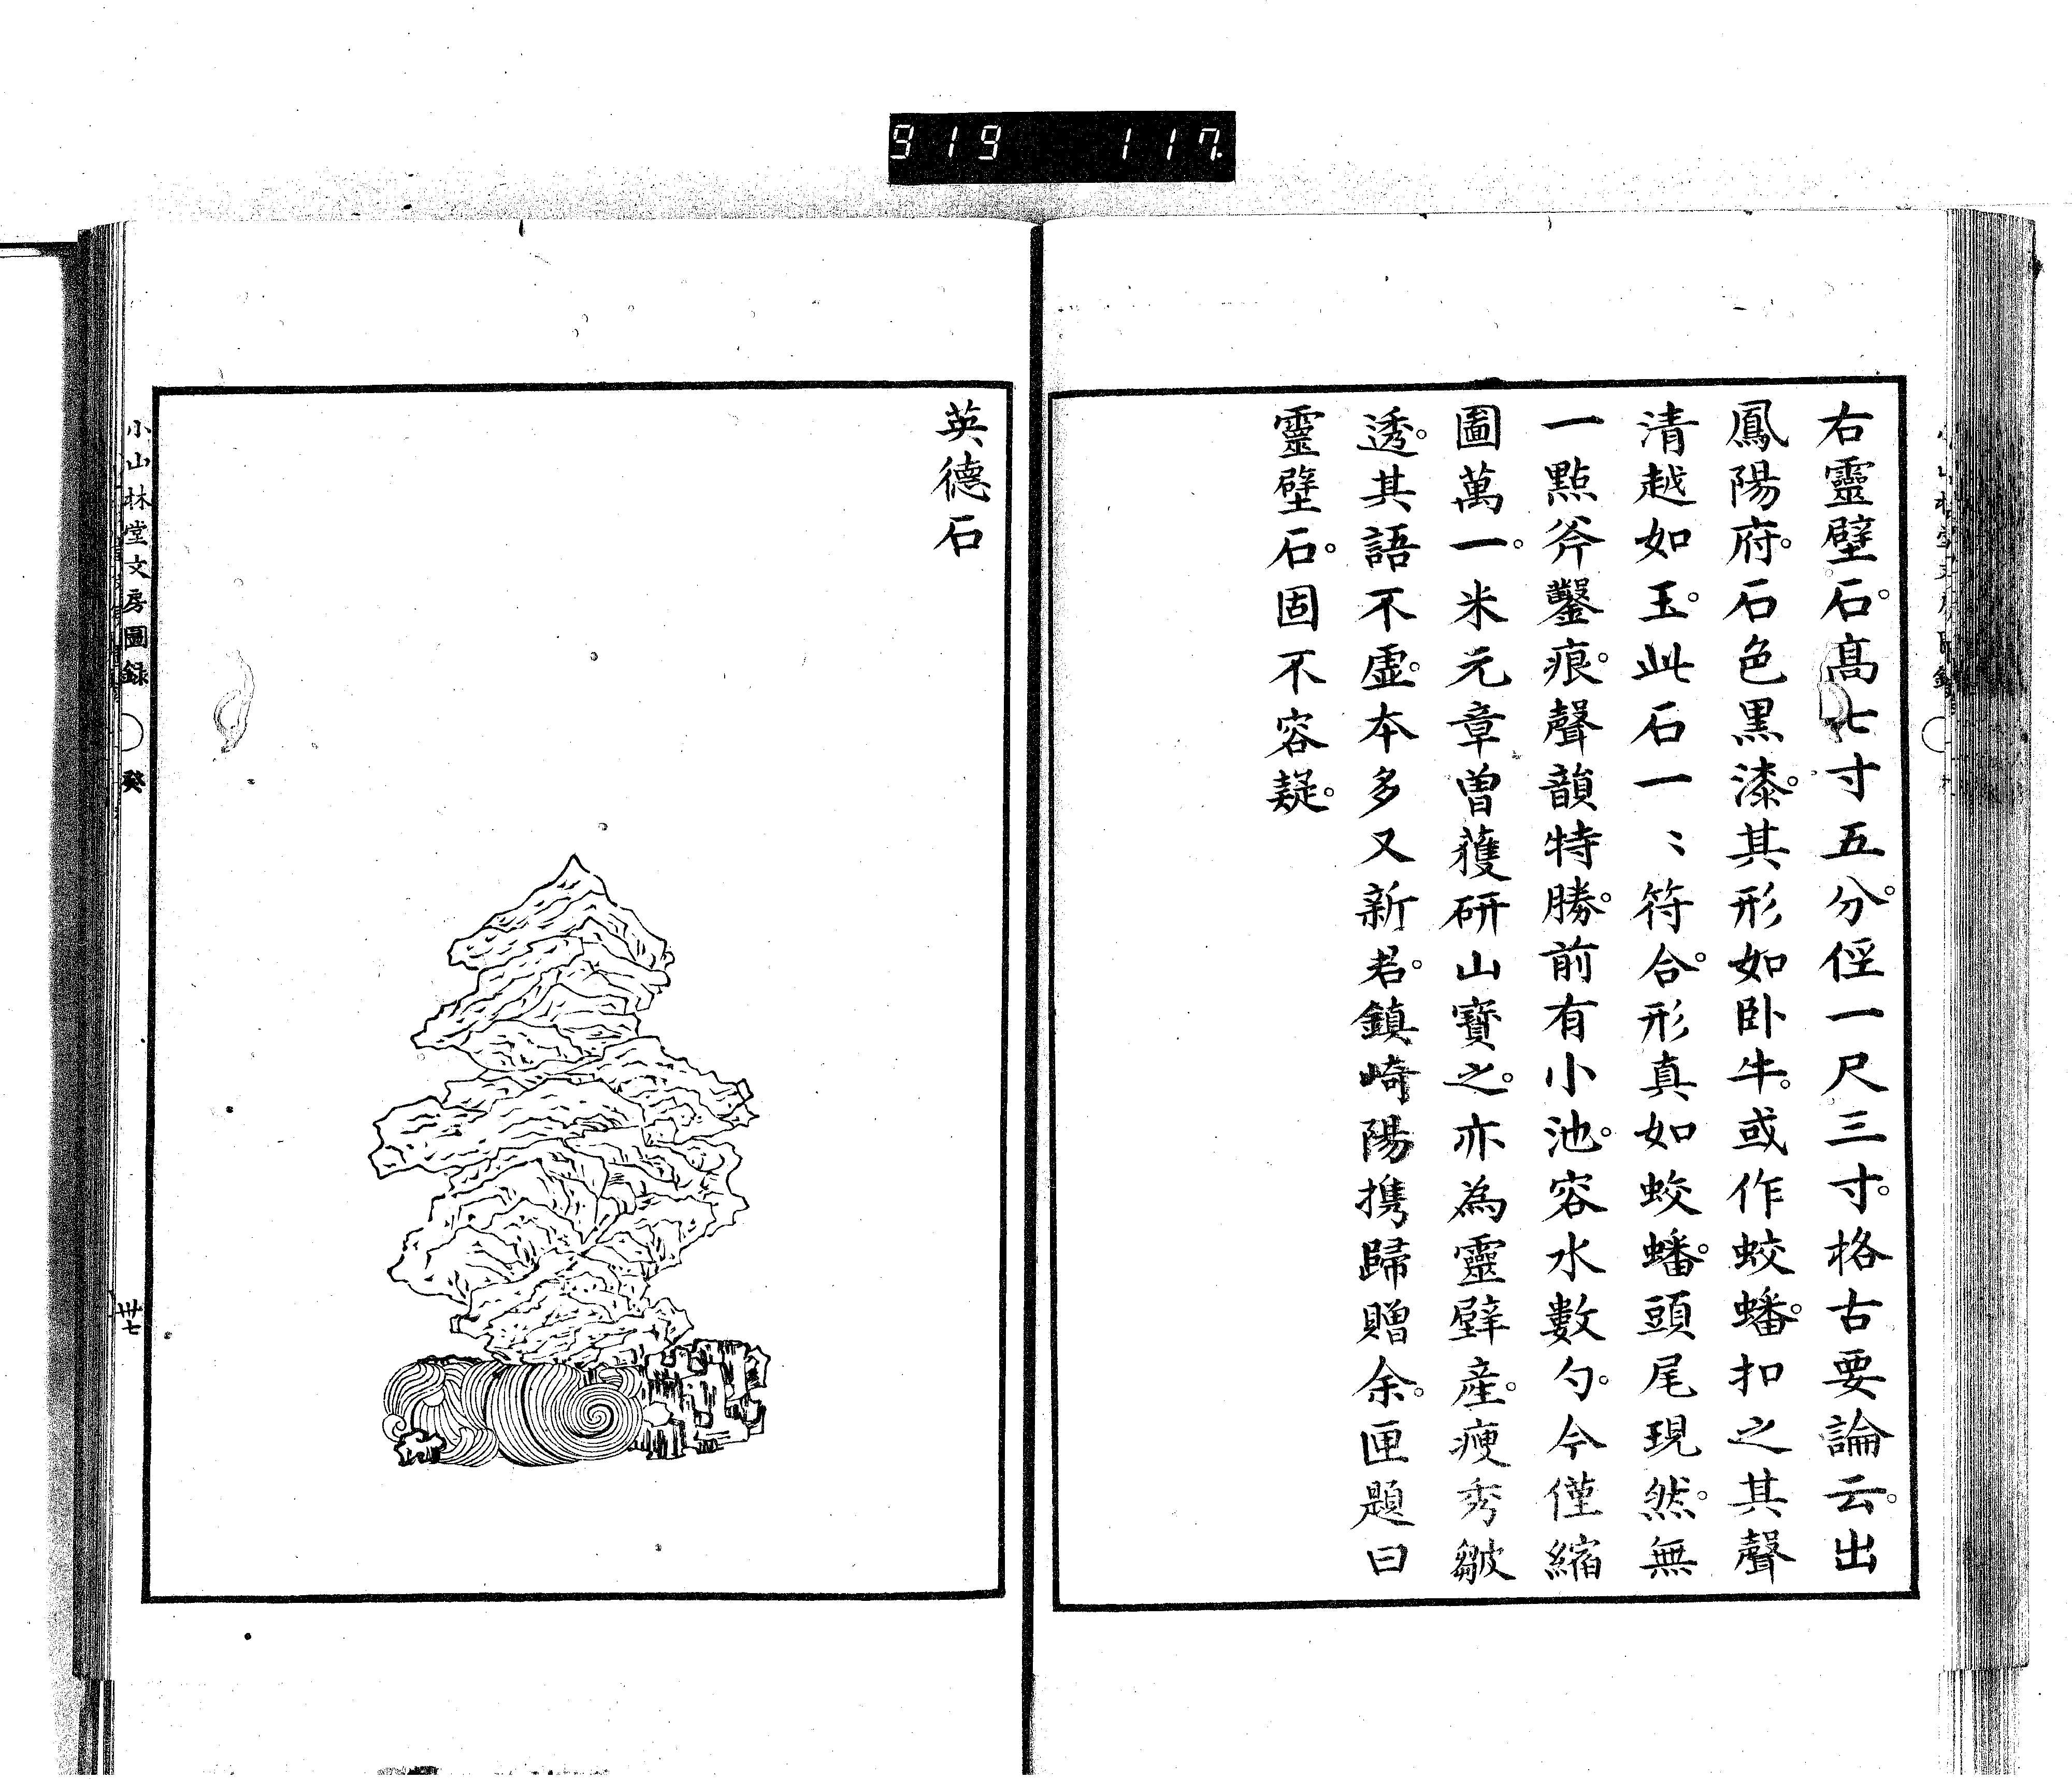 919 117.
右靈壁石。高七寸五分。俓一尺三寸。格古要論云。出
鳳陽府。石色黒漆。其形如卧牛。或作蛟蟠。扣之其聲
清越如玉。此石一〻符合。形真如蛟蟠。頭尾現然。無
一點斧鑿痕。聲韻特勝。前有小池。容水數勺。今僅縮
圖萬一。米元章曽蓰研山寶之。亦為靈壁産。瘦秀皺
透。其語不虚。本多又新君。鎮崎陽携歸贈余。匣題曰
靈壁石。固不容疑。
英德石
小山林堂文房圖録 癸
卅七